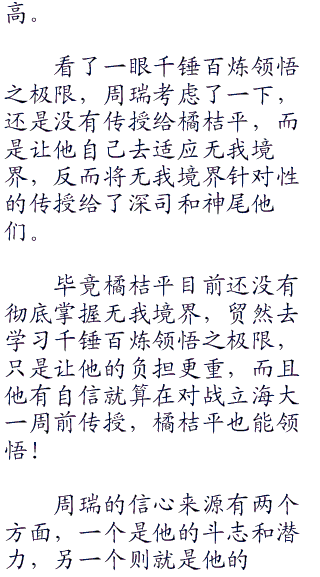 高。
看了一眼千锤百炼领悟
之极限，周瑞考虑了一下，
还是没有传授给橘桔平，而
是让他自己去适应无我境
界，反而将无我境界针对性
的传授给了深司和神尾他
们。
毕竟橘桔平目前还没有
彻底掌握无我境界，贸然去
学习千锤百炼领悟之极限，
只是让他的负担更重，而且
他有自信就算在对战立海大
一周前传授，橘桔平也能领
悟！
周瑞的信心来源有两个
方面，一个是他的斗志和潜
力，另一个则就是他的